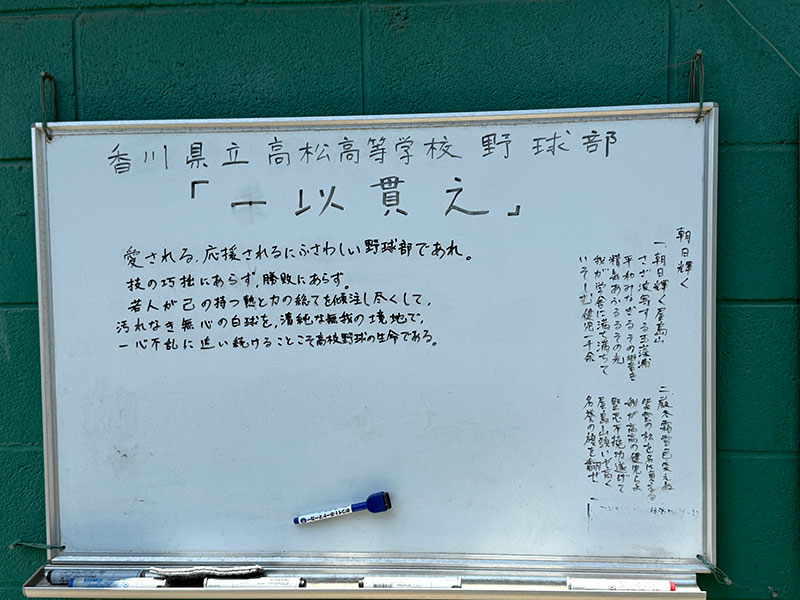 香川県立高松高等学校 野球部
「一以貫之」
愛される、応援されるにふさわしい野球部であれ。
技の巧拙にあらず、勝敗にあらず。
若人が己の持つ熱と力の総てを傾注し尽くして、
汚れなき無心の白球を、清純な無我の境地で、
一心不乱に追い続けることこそ高校野球の生命である。
朝日輝く
一、朝日輝く屋島山
さざ波寄する玉藻浦
平和みなぎるその
精気あふるるその光
我が学舎に満ち満ちて
いそしむ健児一千余
二、
我が高高の健児らよ
堅忍不抜功遂げて
屋島山頭いや高く
名誉の旗を翻せ